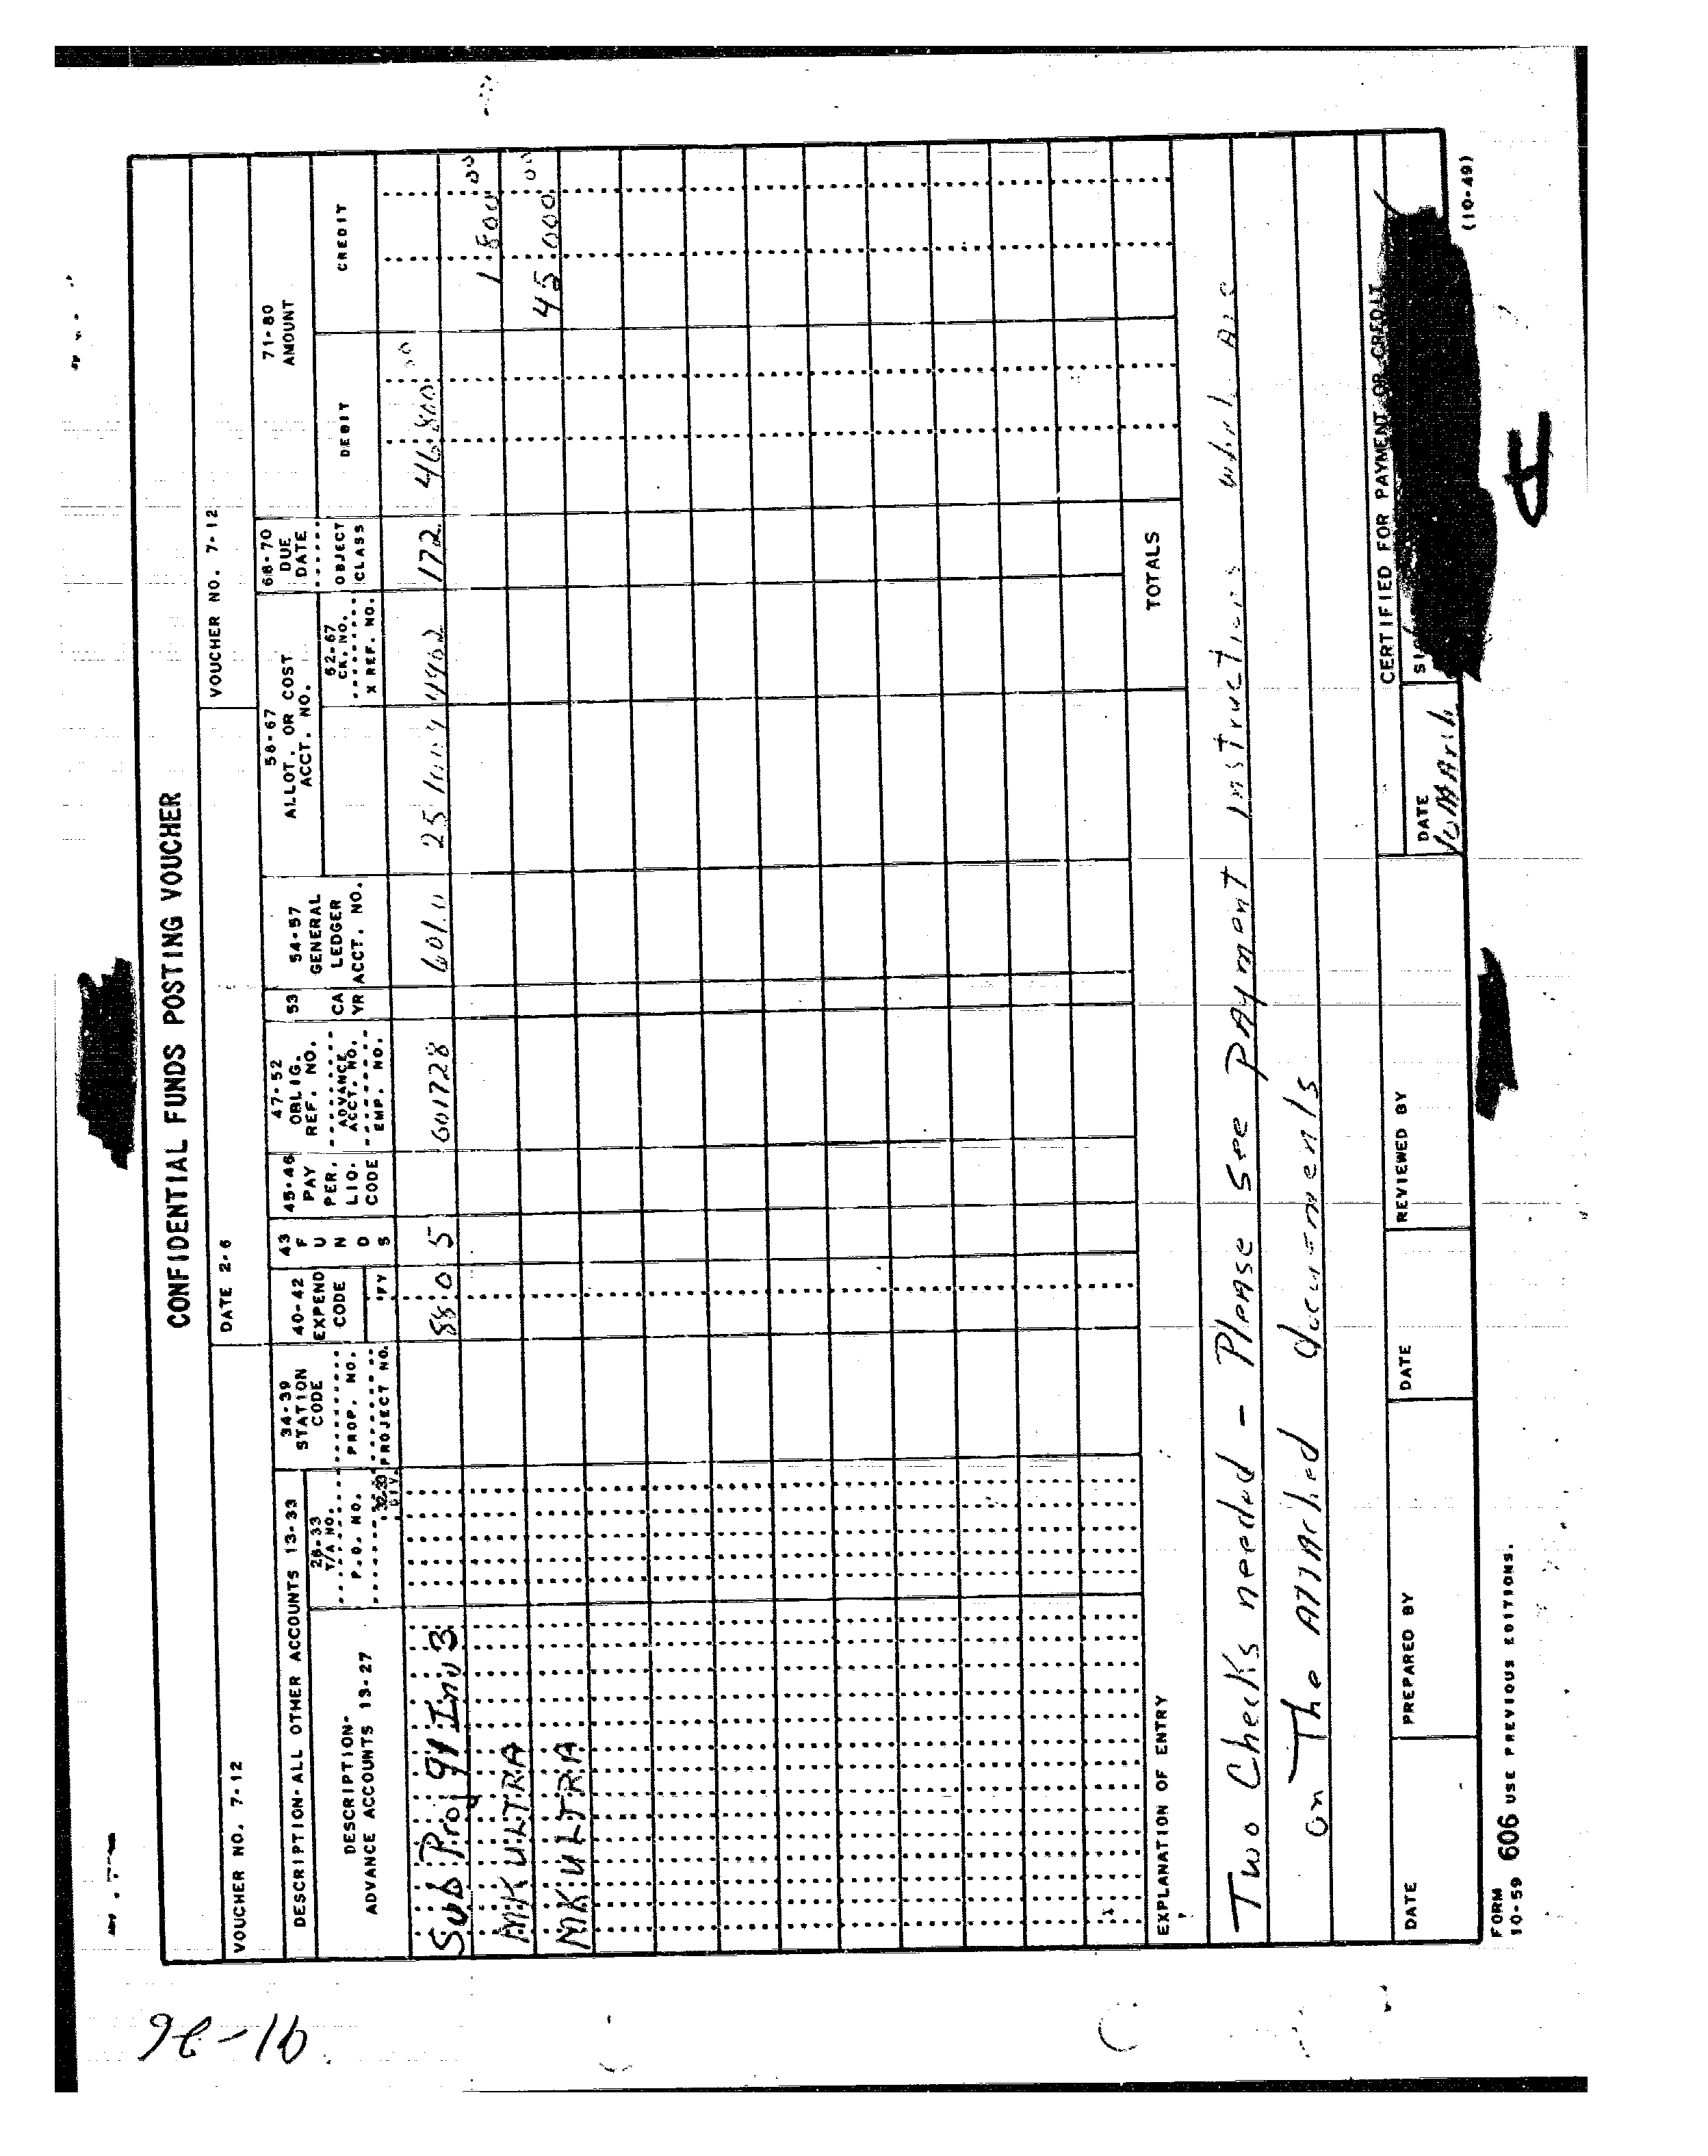 91-26
CONFIDENTIAL FUNDS POSTING VOUCHER
VOUCHER NO. 7-12
DATE 2-6
VOUCHER NO. 7-12
DESCRIPTION-ALL OTHER ACCOUNTS 13-33
DESCRIPTION-
ADVANCE ACCOUNTS 13-27
28-33
T/A NO.
P.O. NO.
DIV.
34-39
STATION
CODE
PROP. NO.
PROJECT NO.
40-42
EXPEND
CODE
FY
43
F
U
N
D
S
45-46
PAY
PER.
LIQ.
CODE
47-52
OBLIG.
REF. NO.
ADVANCE
ACCT. NO.
EMP. NO.
53
CA
YR
54-57
GENERAL
LEDGER
ACCT. NO.
58-67
ALLOT. OR COST
ACCT. NO.
62-67
CK. NO.
X REF. NO.
68-70
DUE
DATE
OBJECT
CLASS
71-80
AMOUNT
DEBIT
CREDIT
Sub Proj 91 Inv 3 5 001728 172 46,800 00
MKULTRA 1 800 00
MKULTRA 45 000 00
TOTALS
EXPLANATION OF ENTRY
Two Checks needed - Please see Payment Instructions which are
on The Attached documents
CERTIFIED FOR PAYMENT OR CREDIT
DATE
PREPARED BY
DATE
REVIEWED BY
DATE
10 March
FORM
10-59 606 USE PREVIOUS EDITIONS.
(10-49)
A